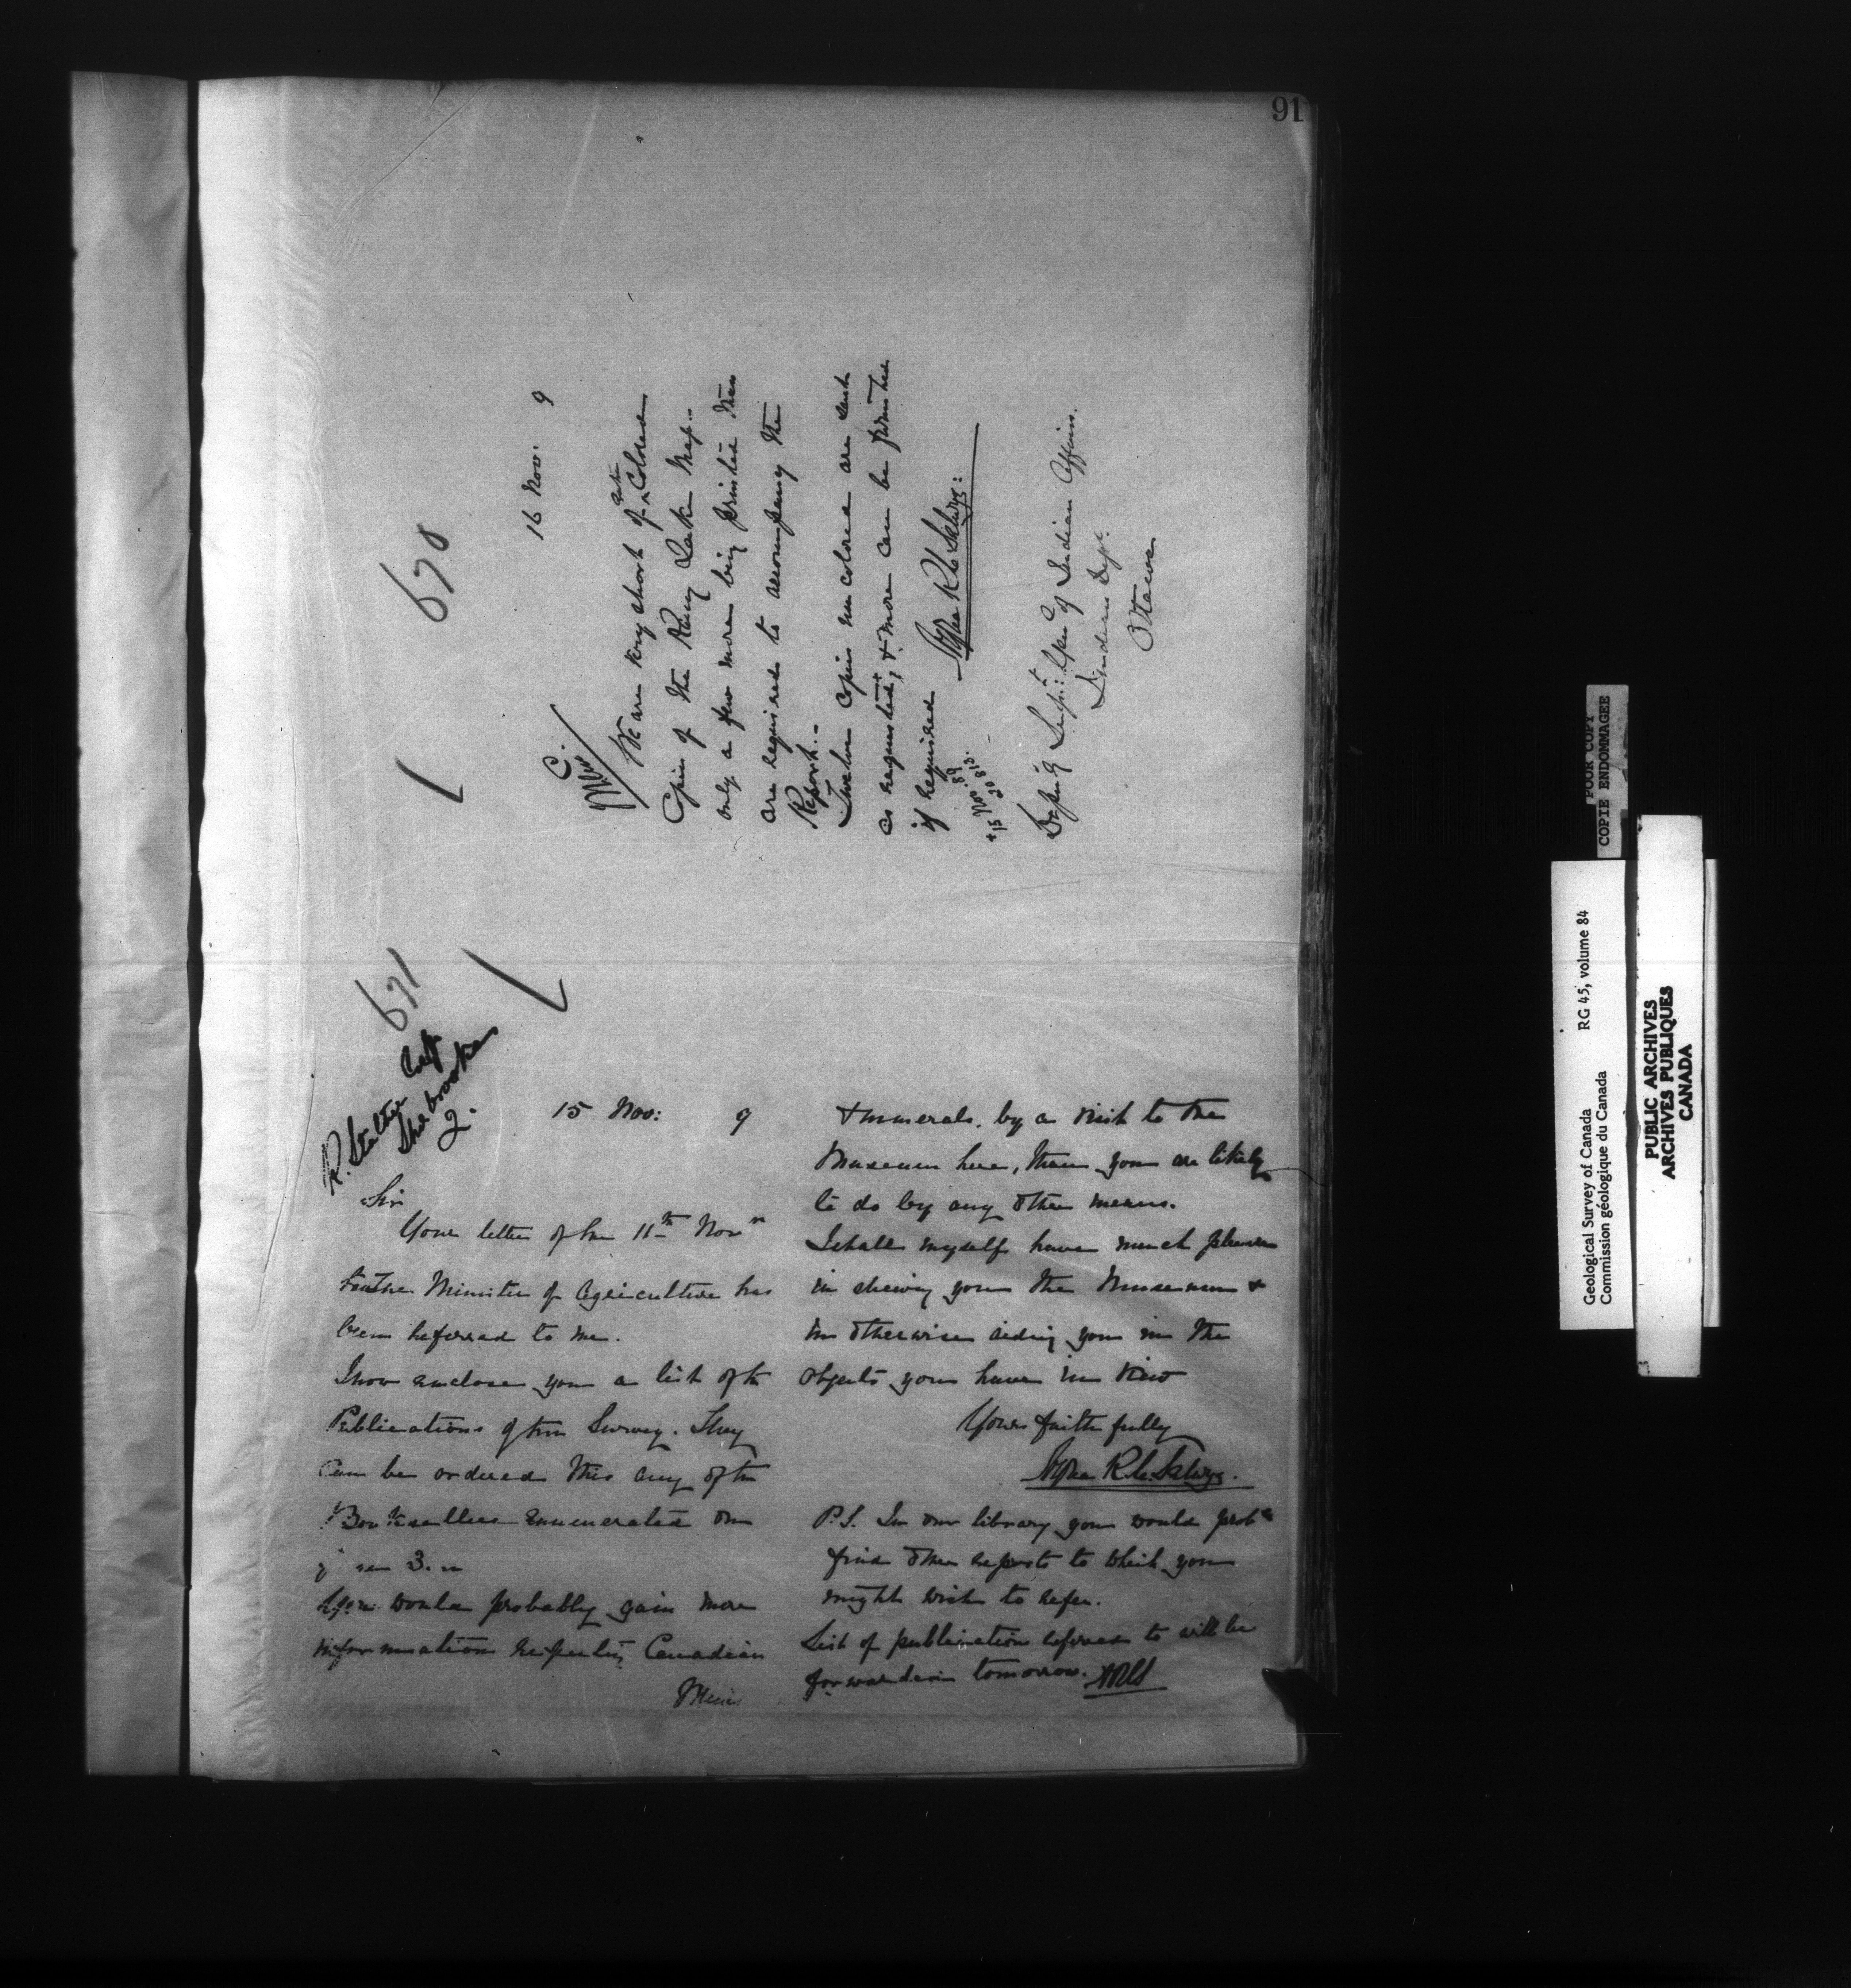 91
670
16 Nov: 9
C.
Mem
We are very short of Colored
Copies of the Rainy Lake Map --
only a few more being printed than
are required to accompany the
Report. -
Twelve copies uncolored are sent
as requested, & more can be furnished
if required
Alfred R C Selwyn:
* 15 Nov. 89
20813.
Deputy Supt: Genl of Indian Affairs.
Indian Dept.
Ottawa
671
R. Stalter
Sherbrooke
Q.
15 Nov: 9
Sir
Your letter of the 11th Novr
to the Minister of Agriculture has
been referred to me.
I now enclose you a list of the
Publications of the Survey. They
can be ordered thro any of the
Booksellers enumerated on
3.
You would probably gain more
information respecting Canadian
& minerals, by a visit to the
Museum here, than you are likely
to do by any other means.
I shall myself have much pleasure
in shewing you the Museum &
in otherwise aiding you in the
objects you have in view
Yours faithfully
Alfred R. C. Selwyn.
P.S. In our library you would proby
find other reports to which you
might wish to refer.
List of publications referred to will be
forwarded tomorrow. ARCS
POOR COPY
COPIE ENDOMMAGEE
Geological Survey of Canada RG 45, volume 84
Commission géologique du Canada
PUBLIC ARCHIVES
ARCHIVES PUBLIQUES
CANADA